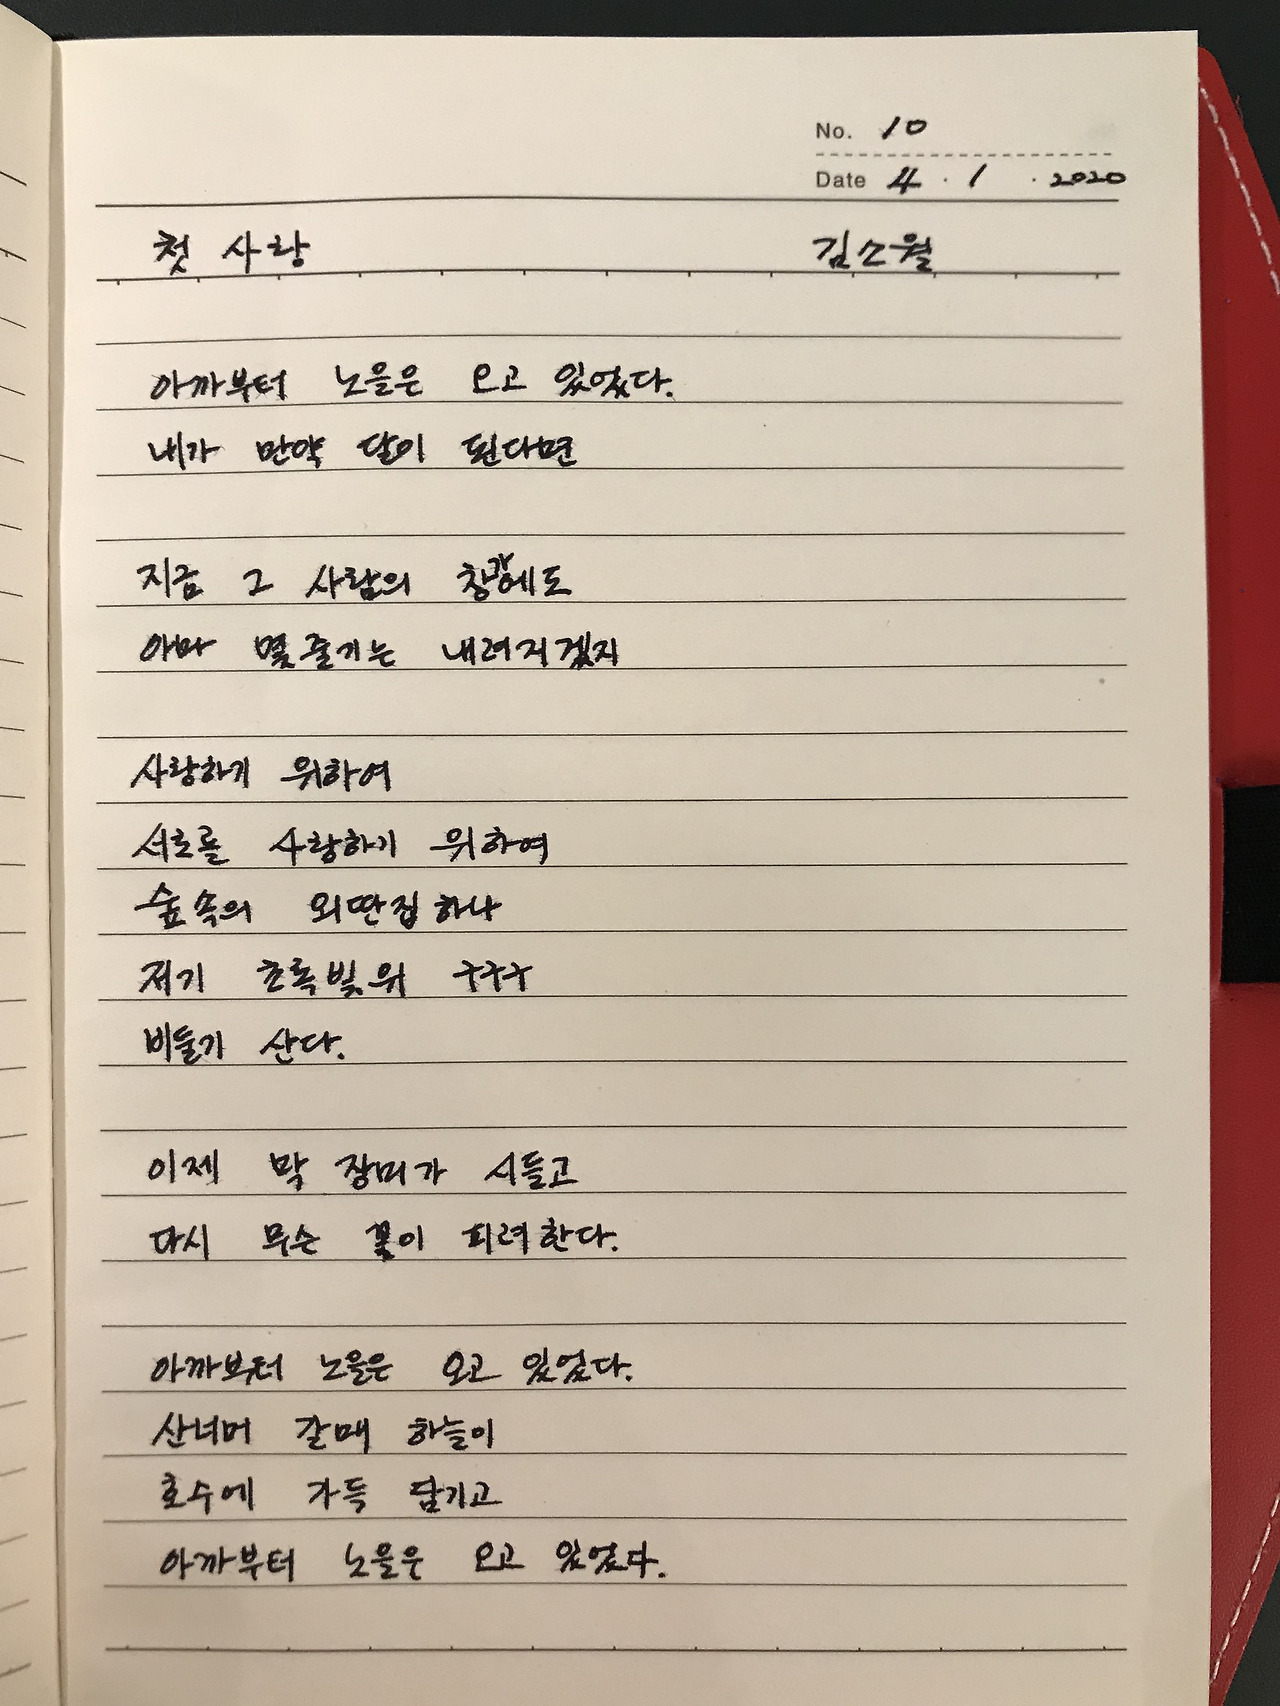 No. 10
Date 4 · 1 · 2020
첫 사랑 김소월
아까부터 노을은 오고 있었다.
내가 만약 달이 된다면
지금 그 사람의 창가에도
아마 몇줄기는 내려지겠지
사랑하기 위하여
서로를 사랑하기 위하여
숲속의 외딴집 하나
저기 초록빛위 구구구
비둘기 산다.
이제 막 장미가 시들고
다시 무슨 꽃이 피려한다.
아까부터 노을은 오고 있었다.
산너머 갈매 하늘이
호수에 가득 담기고
아까부터 노을은 오고 있었다.